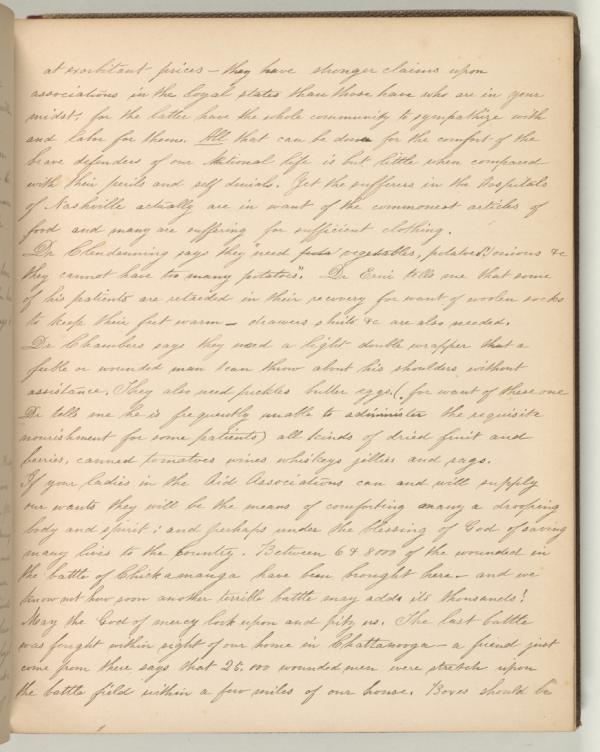 at exorbitant prices – they have stronger claims upon
associations in the loyal states than those have who are in your
midst, for the latter have the whole community to sympathize with
and labor for them. All that can be done for the comfort of the
brave defenders of our National life is but little when compared
with their perils and self denials. Yet the sufferers in the Hospitals
of Nashville actually are in want of the commonest articles of
food and many are suffering for sufficient clothing.
Dr Clendenning says they "need vegetables, potatoes, onions &c
they cannot have too many potatoes". Dr Erni tells me that some
of his patients are retarded in their recovery for want of woolen socks
to keep their feet warm – drawers shirts &c are also needed.
Dr Chambers says they need a light double wrapper that a
feeble or wounded man can throw about his shoulders without
assistance. They also need pickles butter eggs (for want of these one
Dr tells me he is frequently unable to administer the requisite
nourishment for some patients) all kinds of dried fruit and
berries, canned tomatoes wines whiskeys jellies and rags.
If your ladies in the Aid Associations can and will supply
our wants they will be the means of comforting many a drooping
body and spirit; and perhaps under the blessing of God of saving
many lives to the country. Between 6 & 8000 of the wounded in
the battle of Chickamanga have been brought here – and we
know not how soon another terrible battle may add its thousands!
May the God of mercy look upon and pity us. The last battle
was fought within sight of our home in Chattanooga – a friend just
come from there says that 25.000 wounded men were stretch upon
the battle field within a few miles of our house. Boxes should be